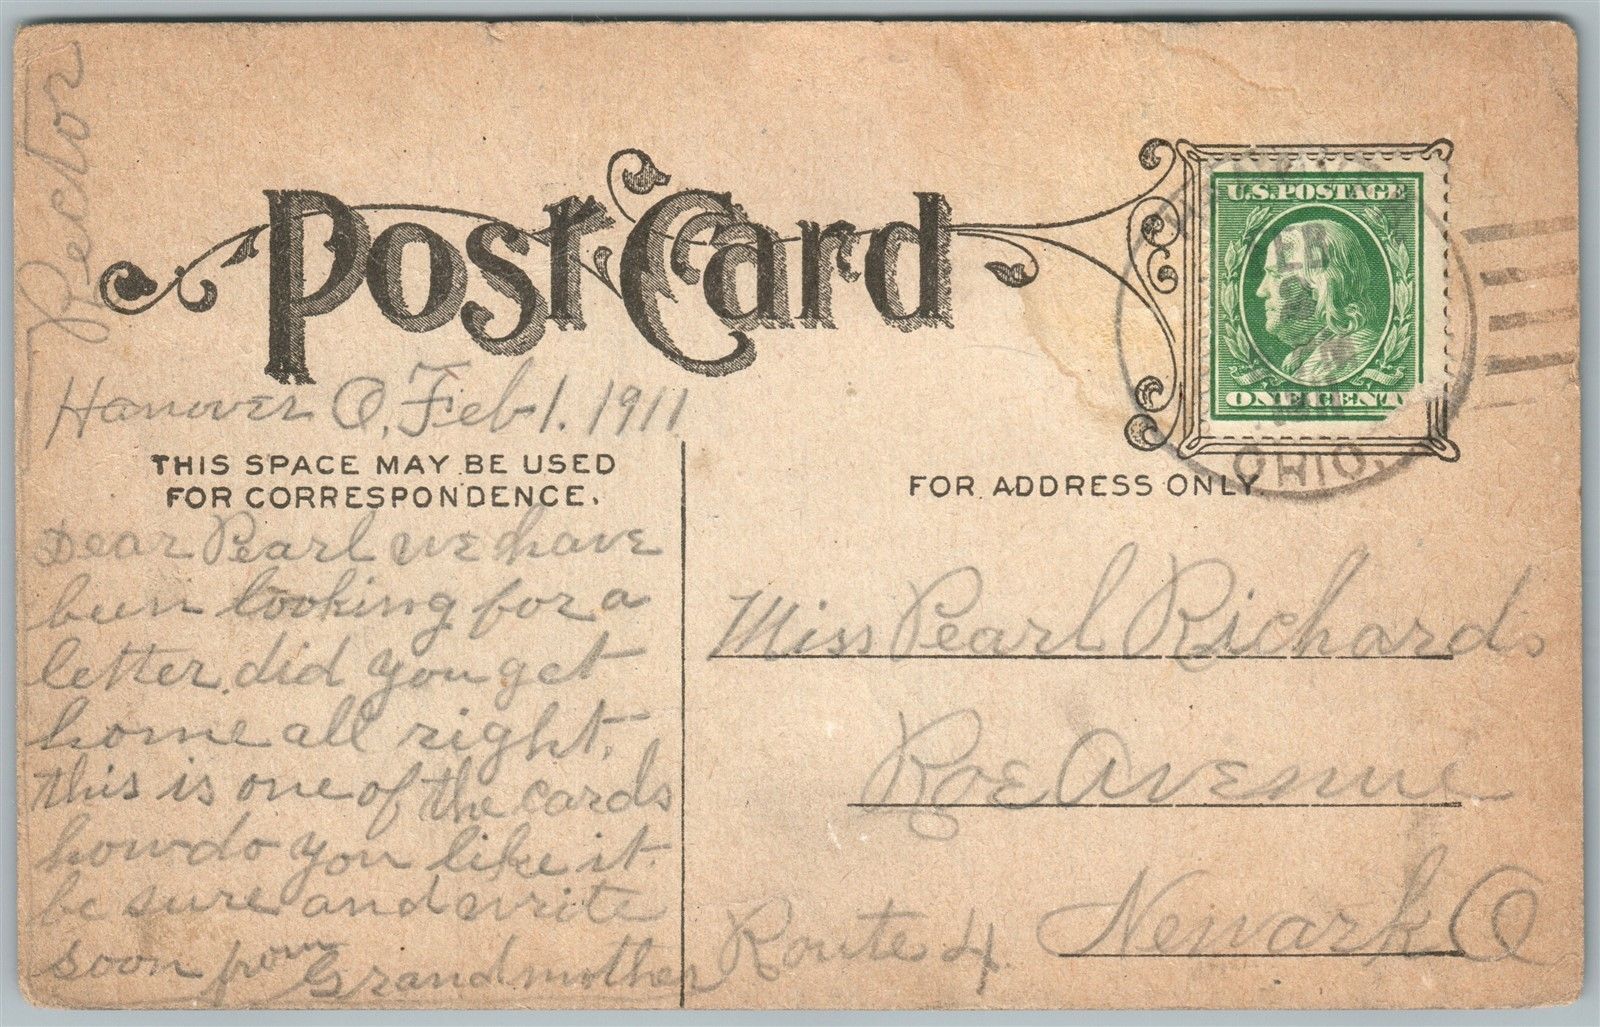 Rector
Post Card
U.S. POSTAGE
FEB
ONE CENT
OHIO.
Hanover O, Feb 1. 1911
THIS SPACE MAY BE USED
FOR CORRESPONDENCE.
FOR ADDRESS ONLY
Dear Pearl we have
been looking for a
letter. did you get
home all right.
this is one of the cards
how do you like it.
be sure and write
soon from Grandmother
Miss Pearl Richards
Roe Avenue
Newark O
Route 4.